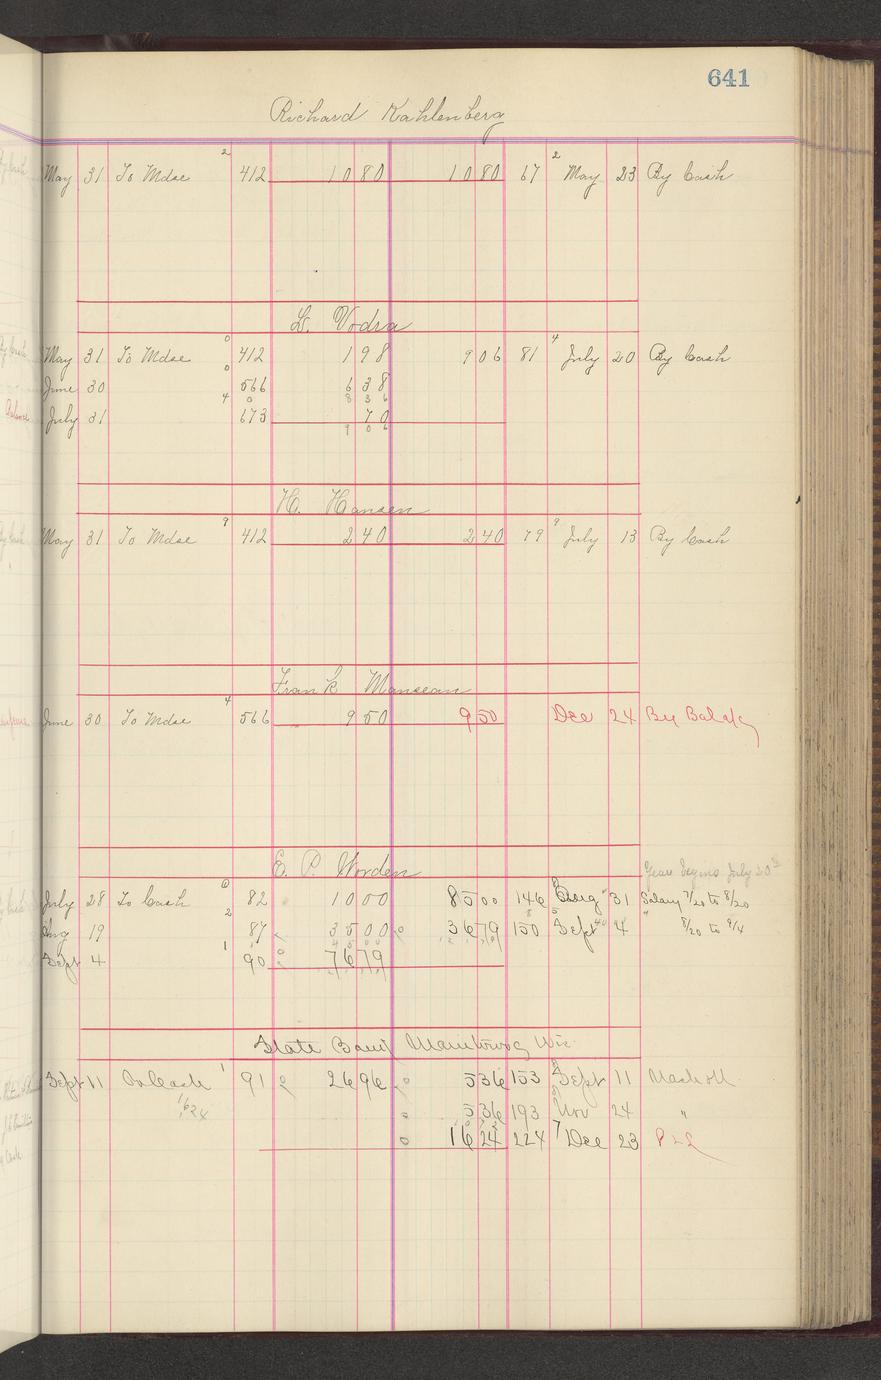 641
Richard Kahlenberg
2 2
May 31 To Mdse 412 10 80 10 80 67 May 23 By Cash
L. Vodra
0 4
May 31 To Mdse 412 1 98 9 06 81 July 20 By Cash
0
June 30 566 6 38
4 0 8 36
July 31 673 70
9 06
H. Hansen
9 9
May 31 To Mdse 412 2 40 2 40 79 July 13 By Cash
Frank Manseau
4
June 30 To Mdse 566 9 50 9 50 Dec 24 By Bal
E. P. Worden
Year begins July 20
0
July 28 To Cash 82 10 00 85 00 146 Aug 31 Salary 7/20 to 8/20
2
Aug 19 87 35 00 36 79 150 Sept 4 " 8/20 to 9/4
1
Sept 4 90 76 79
State Bank Manitowoc Wis
1
Sept 11 To Cash 91 26 96 5 36 153 Sept 11 Mdse
1624
5 36 193 Nov 24 "
16 24 224 7 Dec 23 P & L